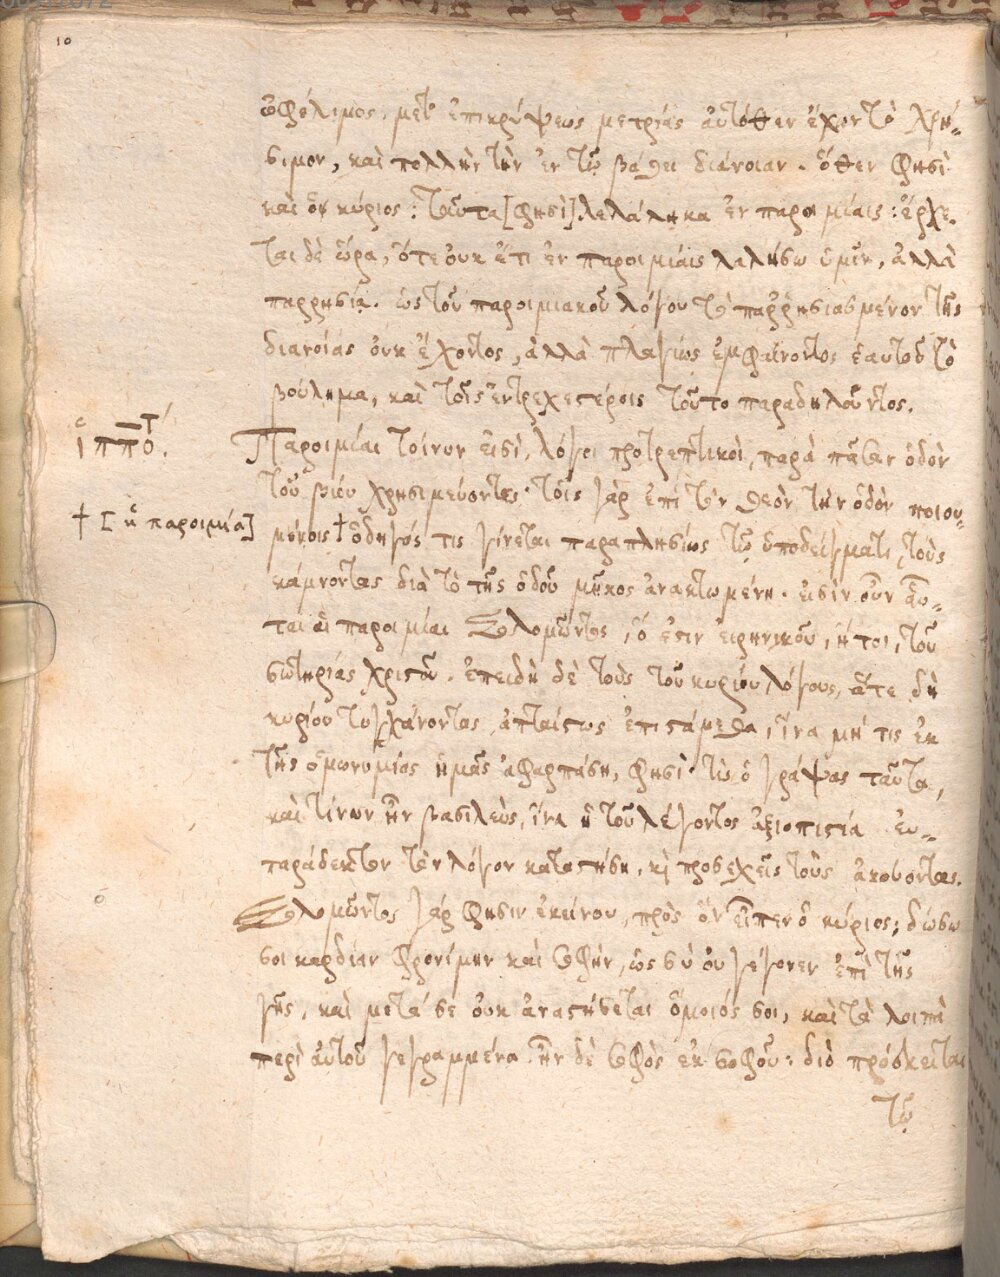 10
ὠφέλιμος, μετ' ἐπικρύψεως μετρίας αὐτόθεν ἔχον τὸ χρή-
σιμον, καὶ πολλὴν τὴν ἐν τῷ βάθει διάνοιαν. ὅθεν φησὶ
καὶ ὁ κύριος: ταῦτα [φησὶ] λελάληκα ἐν παροιμίαις: ἔρχε-
ται δὲ ὥρα, ὅτε οὐκ ἔτι ἐν παροιμίαις λαλήσω ὑμῖν, ἀλλὰ
παρρησίᾳ. ὡς τοῦ παροιμιακοῦ λόγου τὸ παῤῥησιασμένον τῆς
διανοίας οὐκ ἔχοντος, ἀλλὰ πλαγίως ἐμφαίνοντος ἑαυτοῦ τὸ
βούλημα, καὶ τοῖς ἐντρεχεστέροις τοῦτο παραδηλοῦντος.
ἱππο. τ´
Παροιμίαι τοίνυν εἰσὶ, λόγοι προτρεπτικοὶ, παρὰ πᾶσαν ὁδὸν
τοῦ βίου χρησιμεύοντες. τοῖς γὰρ ἐπὶ τὸν θεὸν τὴν ὁδὸν ποιου-
† [ἡ παροιμία]
μένοις † ὁδηγός τις γίνεται παραπλησίως τῷ ὑποδείγματι, τοὺς
κάμνοντας διὰ τὸ τῆς ὁδοῦ μῆκος ἀνακτωμένη. εἰσὶν οὖν αὗ-
ται αἱ παροιμίαι Σολομῶντος, ὅ ἐστιν εἰρηνικοῦ, ἤτοι, τοῦ
σωτηρίας χριστοῦ. ἐπειδὴ δὲ τοὺς τοῦ κυρίου λόγους, ἅτε δὴ
κυρίου τυγχάνοντας, ἀπταίστως ἐπιστάμεθα, ἵνα μή τις ἐκ
τῆς ὁμωνυμίας ἡμᾶς ἀφαρπάσῃ, φησὶ τίς ὁ γράψας ταῦτα,
καὶ τίνων ἦν βασιλεὺς, ἵνα ἡ τοῦ λέγοντος ἀξιοπιστία εὐ-
παράδεκτον τὸν λόγον καταστήσῃ, κὶ προσεχεῖς τοὺς ἀκούοντας.
Σολομῶντος γάρ φησιν ἐκείνου, πρὸς ὃν εἶπεν ὁ κύριος; δώσω
σοι καρδίαν φρονίμην καὶ σοφήν, ὡς σὺ οὐ γέγονεν ἐπὶ τῆς
γῆς, καὶ μετά σε οὐκ ἀναστήσεται ὅμοιός σοι, καὶ τὰ λοιπὰ
περὶ αὐτοῦ γεγραμμένα. ἦν δὲ σοφὸς ἐκ σοφοῦ: διὸ πρόσκειται
τῷ